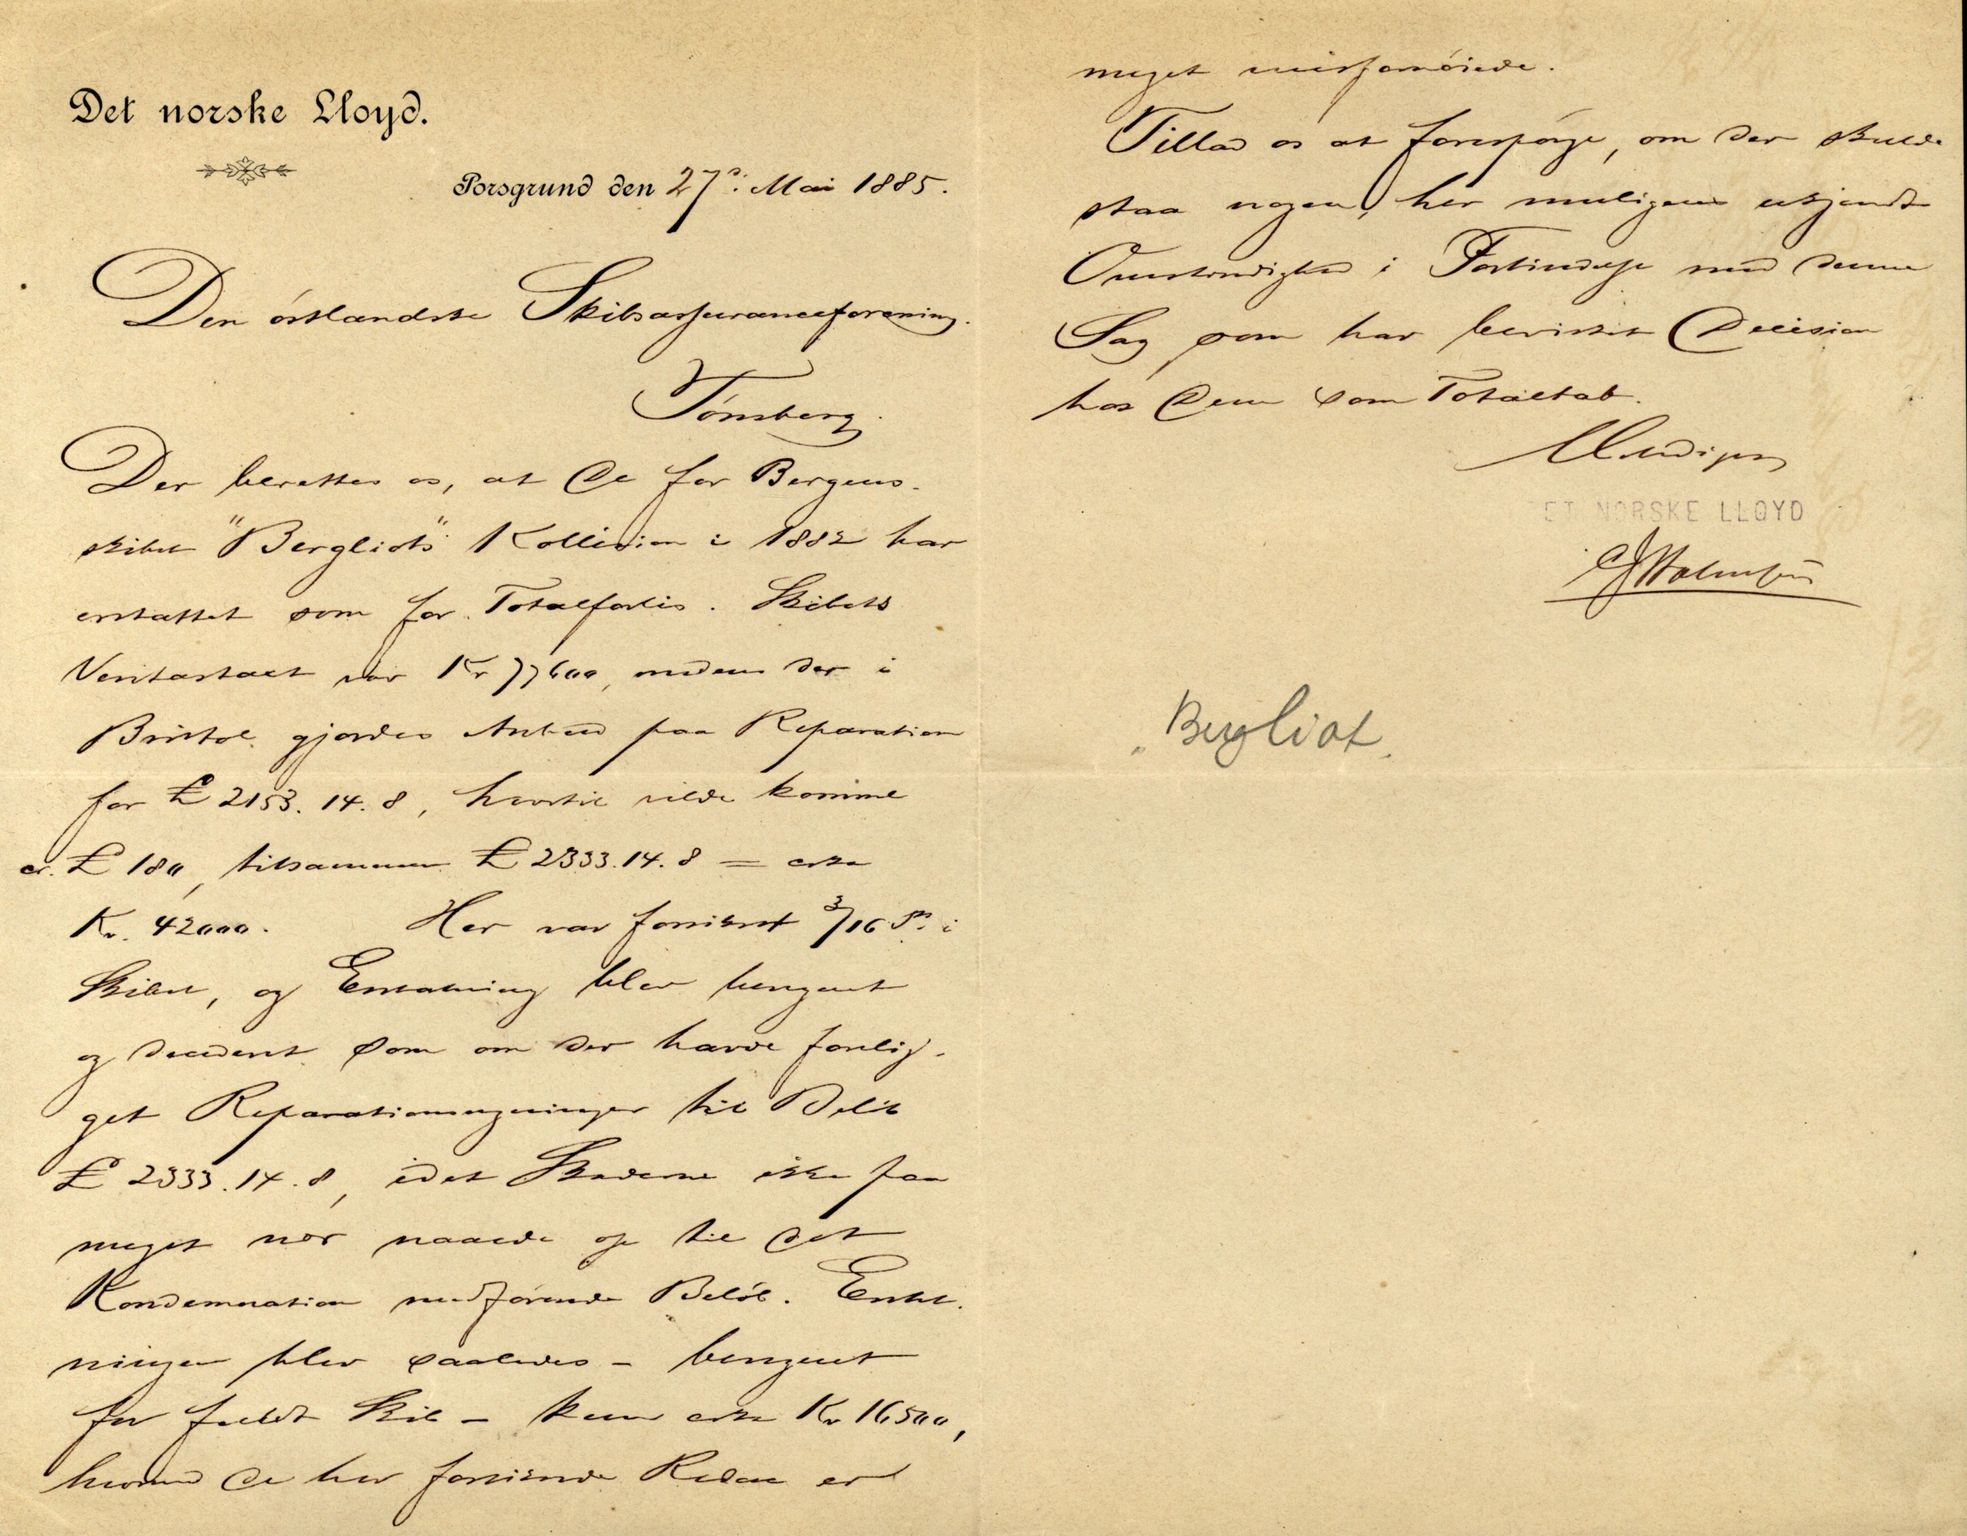 Det norske Lloyd.
Porsgrund den 27de Mai 1885.
Den östlandske Skibsassuranceforening.
Tönsberg.
Der berettes os, at De for Bergens-
skibet "Bergliots" Kollision i 1882 har
erstattet som for Totalforlis. Skibets
Veritastaxt var Kr 77600, medens der i
Bristol gjordes Anbud paa Reparation
for £ 2153.14.8, hvortil vilde komme
ca. £ 180, tilsammen £ 2333.14.8 = cirka
Kr. 42000. Her var forsikret 3/16 Pt. i
Skibet, og Erstatning blev beregnet
og decideret som om der havde forelig-
get Reparationsregninger til Belöb
£ 2333.14.8, idet Skaderne ikke paa
meget nær naaede op til det
Kondemnation medförende Belöb. Erstat-
ningen blev saaledes – beregnet
for fuldt Skib – kun cirka Kr 16500,
hvormed de her forsikrede Redere er
meget misfornöiede.
Tillad os at forespörge, om der skulde
staa nogen, her muligens ukjendt
Omstændighed i Forbindelse med denne
Sag som har bevirket Decision
hos Dem som Totaltab.
Ærbödigst
ET NORSKE LLOYD
"Bergliot"